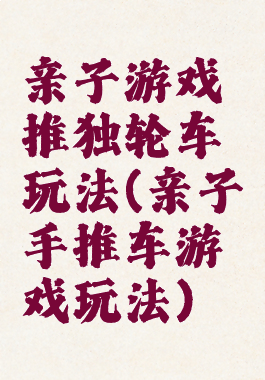 亲子游戏
推独轮车
玩法(亲子
手推车游
戏玩法)